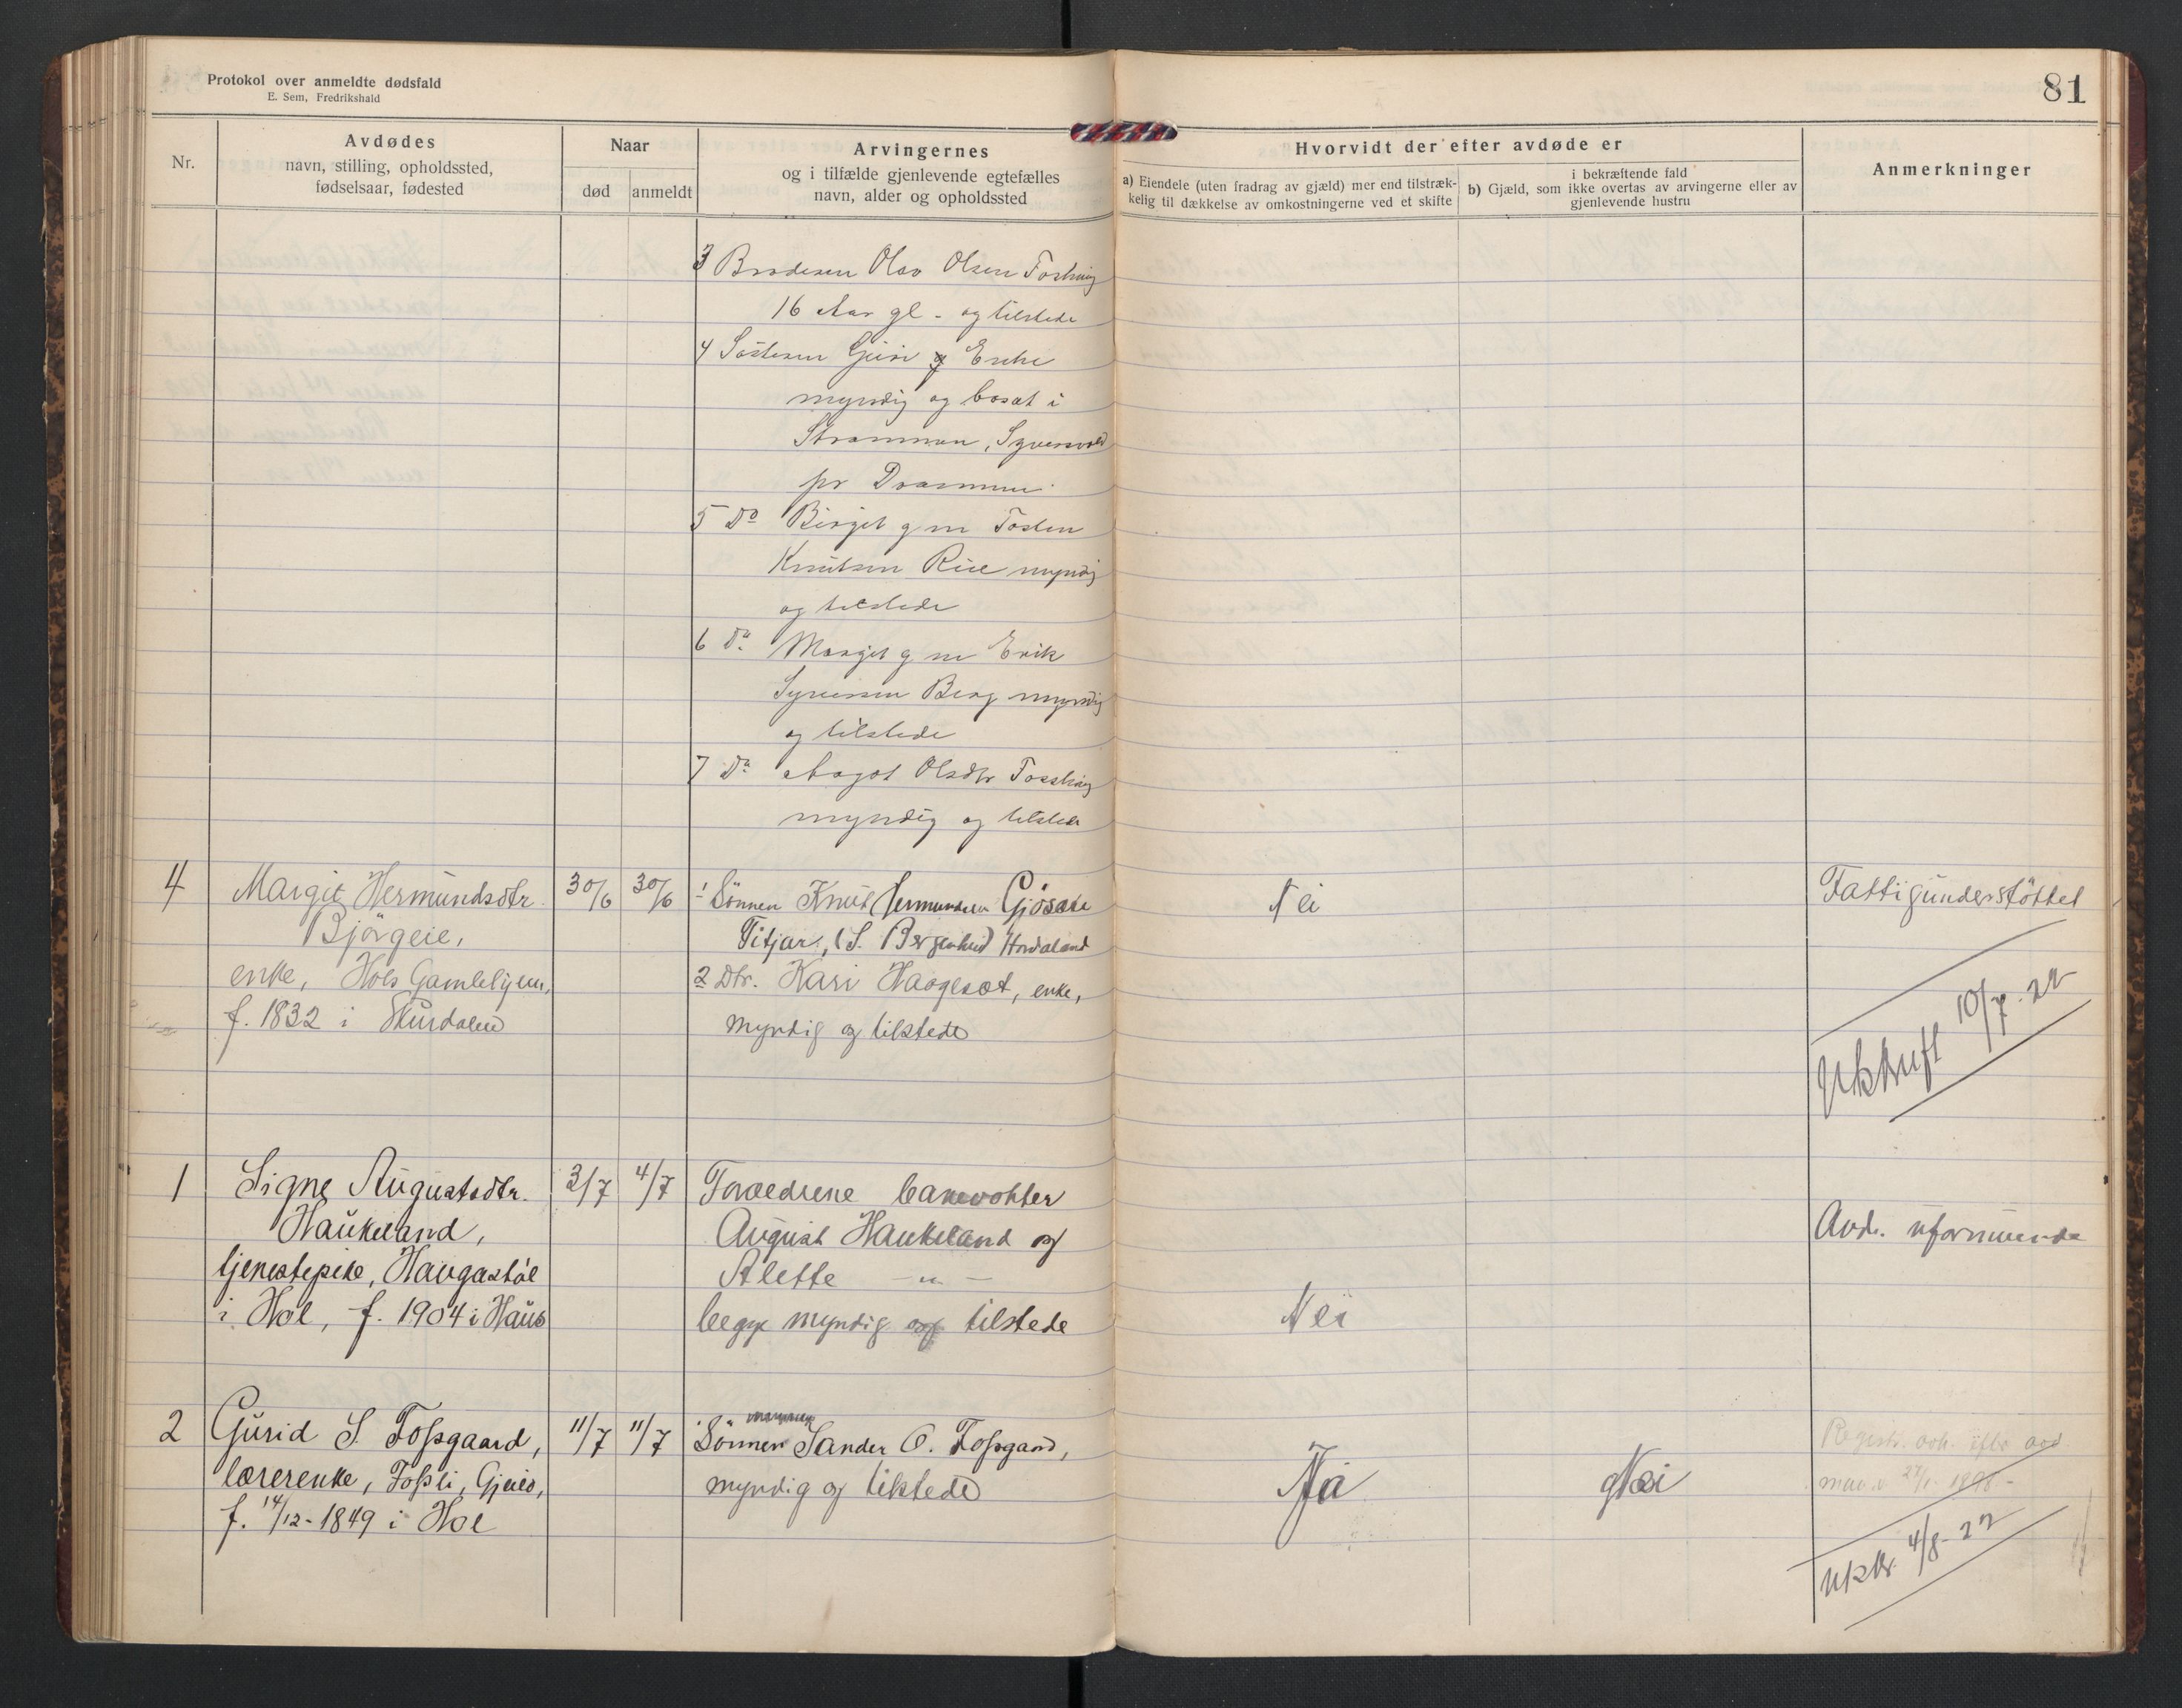 Protokol over anmeldte dødsfald
E. Sem, Fredrikshald
81
Nr.
Avdødes
navn, stilling, opholdssted,
fødselsaar, fødested
Naar
død
anmeldt
Arvingernes
og i tilfælde gjenlevende egtefælles
navn, alder og opholdssted
Hvorvidt der efter avdøde er
a) Eiendele (uten fradrag av gjæld) mer end tilstræk-
kelig til dækkelse av omkostningerne ved et skifte
i bekræftende fald
b) Gjæld, som ikke overtas av arvingerne eller av
gjenlevende hustru
Anmerkninger
3 Broderen Olav Olsen
16 Aar gl - og tilstede
4 Søsteren Guri Enke
myndig og bosat i
Strømmen,
pr Drammen
5 Do Birgit g m Tosten
Knutsen myndig
og tilstede
6 Do Margit g m Erik
Syversen Berg myndig
og tilstede
7 Do Aagot Olsdtr
myndig og tilstede
4
Margit Hermundsdtr.
Bjørgeie,
enke, Hols Gamlehjem,
f. 1832 i Hurdalen
30/6
30/6
1 Sønnen Knut Hermundsen
Fitjar, (S. Bergenhus) Hordaland
2 Dtr. Kari Haogeset, enke,
myndig og tilstede
Nei
Fattigunderstøttet
Utskrift 10/7-22
1
Signe Augustsdtr.
Haukeland,
tjenestepike, Haugastøl
i Hol, f. 1904 i Haus
3/7
4/7
Foræeldrene banevokter
August Haukeland og
Alette — " —
begge myndig og tilstede
Nei
Avd. uformuende
2
Gurid S. Fossgaard,
lærerenke, Fossli, Gjeilo,
f. 14/12-1849 i Hol
11/7
11/7
Sønnen Sander O. Fossgard,
myndig og tilstede
Ja
Nei
Registr. avh. efter avd
1898-
utskr. 4/8-22